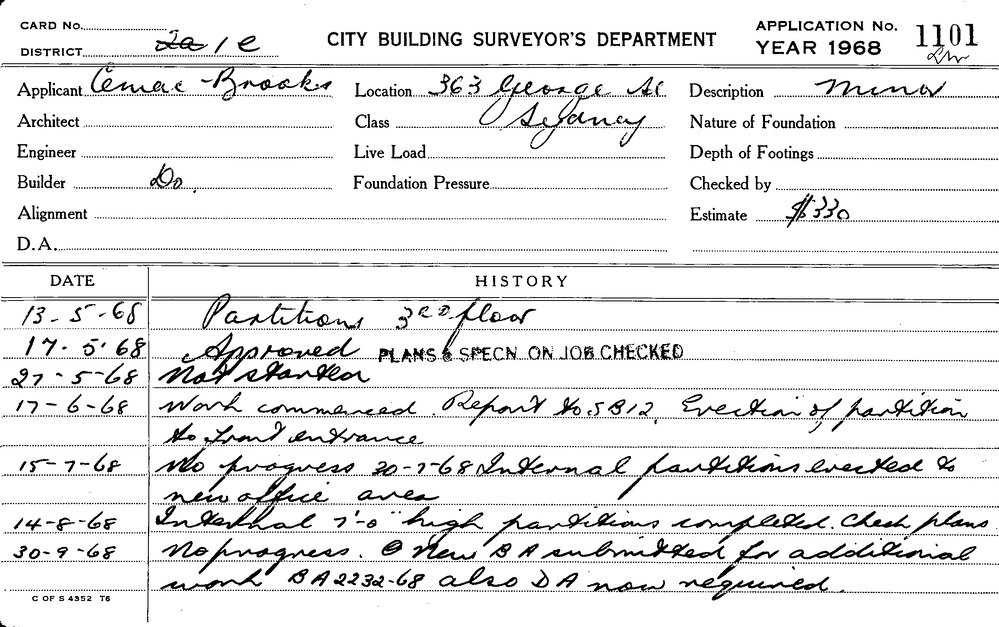 CARD No.
DISTRICT 2a 1 e
CITY BUILDING SURVEYOR'S DEPARTMENT
APPLICATION No. 1101
YEAR 1968
Applicant Cemac-Brooks
Location 363 George St
Description Minor
Architect
Class Sydney
Nature of Foundation
Engineer
Live Load
Depth of Footings
Builder Do.
Foundation Pressure
Checked by
Alignment
Estimate $330
D.A.
DATE HISTORY
13-5-68 Partitions 3RD floor
17-5-68 Approved PLANS & SPECN. ON JOB CHECKED
27-5-68 Not started
17-6-68 Work commenced. Report to SB12. Erection of partition
to front entrance
15-7-68 No progress 30-7-68 Internal partitions erected to
new office area
14-8-68 Internal 7'-0" high partitions completed. Check plans
30-9-68 No progress. New BA submitted for additional
work BA2232-68 also DA now required.
C OF S 4352 T6